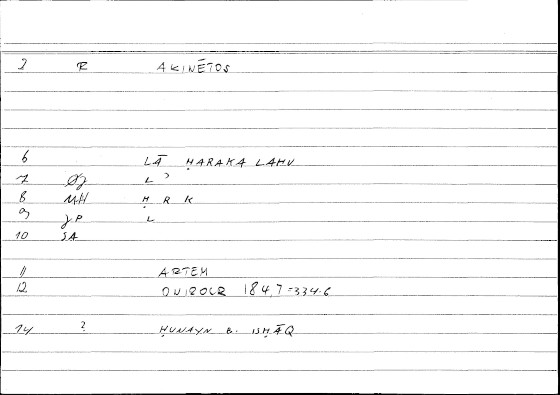 2 R AKINĒTOS
6 LĀ ḤARAKA LAHU
7 ØJ L ʾ
8 MH Ḥ R K
9 JP L
10 SA
11 ARTEM
12 ONIROCR 184,7=334.6
14 ? ḤUNAYN B. ISḤĀQ